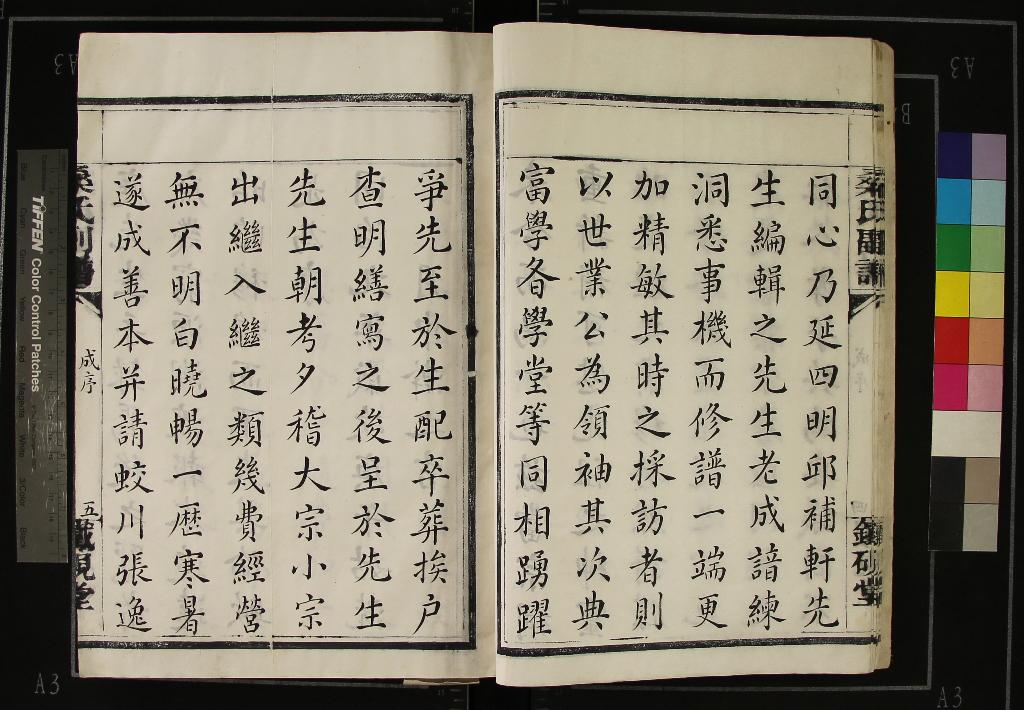 同心乃延四明邱補軒先
生編輯之先生老成諳練
洞悉事機而修譜一端更
加精敏其時之採訪者則
以世業公為領袖其次典
富學备學堂等同相踴躍
爭先至於生配卒葬挨户
查明繕寫之後呈於先生
先生朝考夕稽大宗小宗
出繼入繼之類幾費經營
無不明白曉暢一歷寒暑
遂成善本并請蛟川張逸
成序
五
TIFFEN Color Control Patches
A3
A3
A3
A3